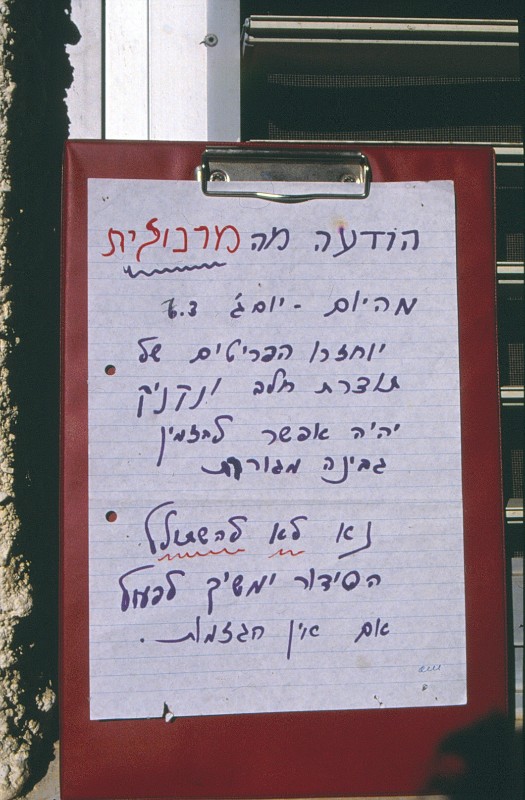 הודעה מה מרכולית
מהיום - יום ג' 6.3
יוחזרו הפריטים של
תוצרת חלב ונקניק
יהיה אפשר להזמין
גבינה מגוררת
נא לא להשתולל
הסידור ימשיך לפעול
אם אין הגזמות.